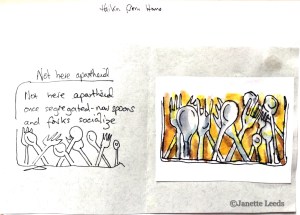 Not here apartheid
Not here apartheid
once segregated - now spoons
and forks socialize
©Janette Leeds